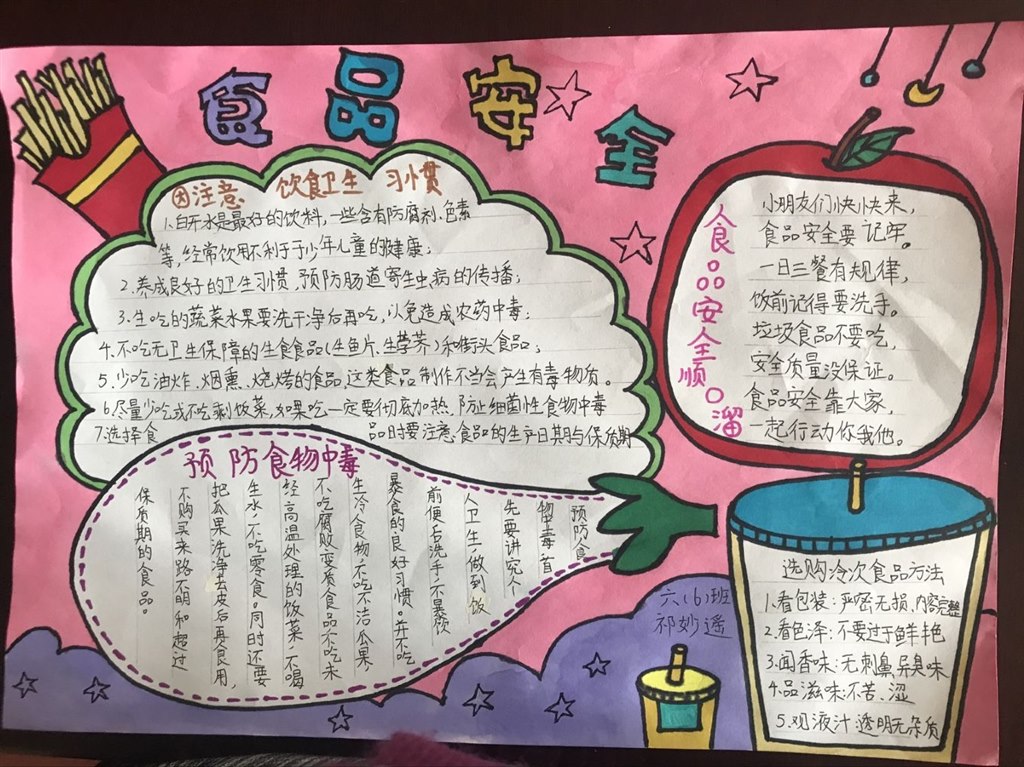 食品安全
因注意 饮食卫生 习惯
1.白开水是最好的饮料,一些含有防腐剂、色素
等,经常饮用不利于于少年儿童的健康;
2.养成良好的卫生习惯,预防肠道寄生虫病的传播;
3.生吃的蔬菜水果要洗干净后再吃,以免造成农药中毒;
4.不吃无卫生保障的生食食品(生鱼片、生荸荠)和街头食品;
5.少吃油炸、烟熏、烧烤的食品,这类食品制作不当会产生有毒物质。
6.尽量少吃或不吃剩饭菜,如果吃一定要彻底加热,防止细菌性食物中毒
7.选择食品时要注意食品的生产日期与保质期
食品安全顺口溜
小朋友们快快来,
食品安全要记牢。
一日三餐有规律,
饭前记得要洗手。
垃圾食品不要吃,
安全质量没保证。
食品安全靠大家,
一起行动你我他。
预防食物中毒
预防食
物中毒首
先要讲究个
人卫生,做到饭
前便后洗手,不暴饮
暴食的良好习惯。并不吃
生冷食物,不吃不洁瓜果,
不吃腐败变质食品不吃未
经高温处理的饭菜,不喝
生水,不吃零食。同时还要
把瓜果洗净去皮后再食用,
不购买来路不明和超过
保质期的食品。
六(6)班
祁妙遥
选购冷饮食品方法
1.看包装:严密无损、内容完整
2.看色泽:不要过于鲜艳
3.闻香味:无刺鼻、异臭味
4.品滋味:不苦、涩
5.观液汁:透明无杂质